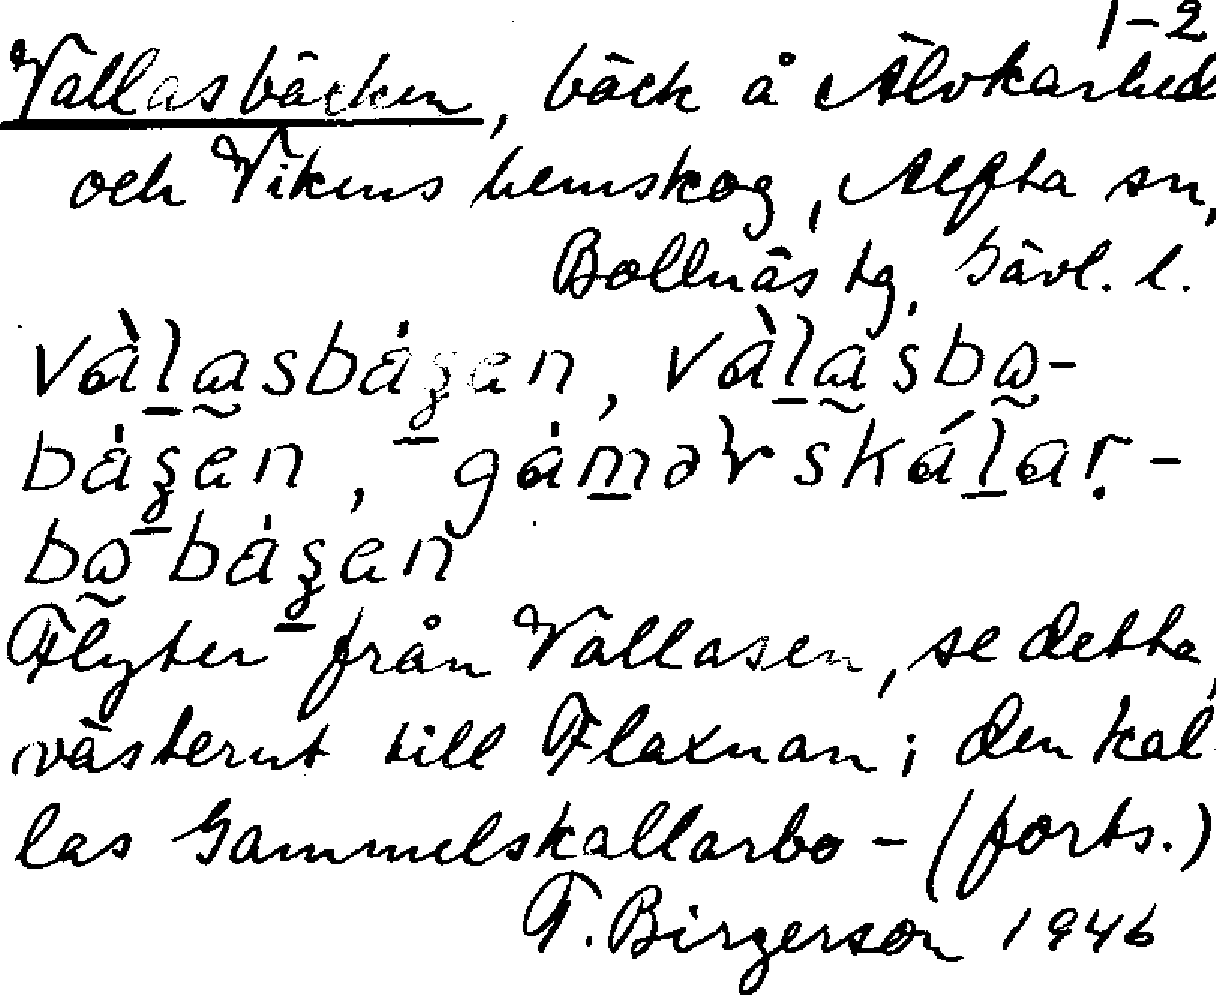 1-2
Vallasbäcken, bäck å Älvkarhed
och Vikens hemskog, Alfta sn,
Bollnäs tg, Gävl. l.
vàlasbáʒen, vàlasbω-
báʒen, gámər skálaṛ-
bω báʒen
Flyter från Vallasen, se detta,
västerut till Flaxnan; den kal
las Gammelskallarbo - (forts.)
T. Birgerson 1946